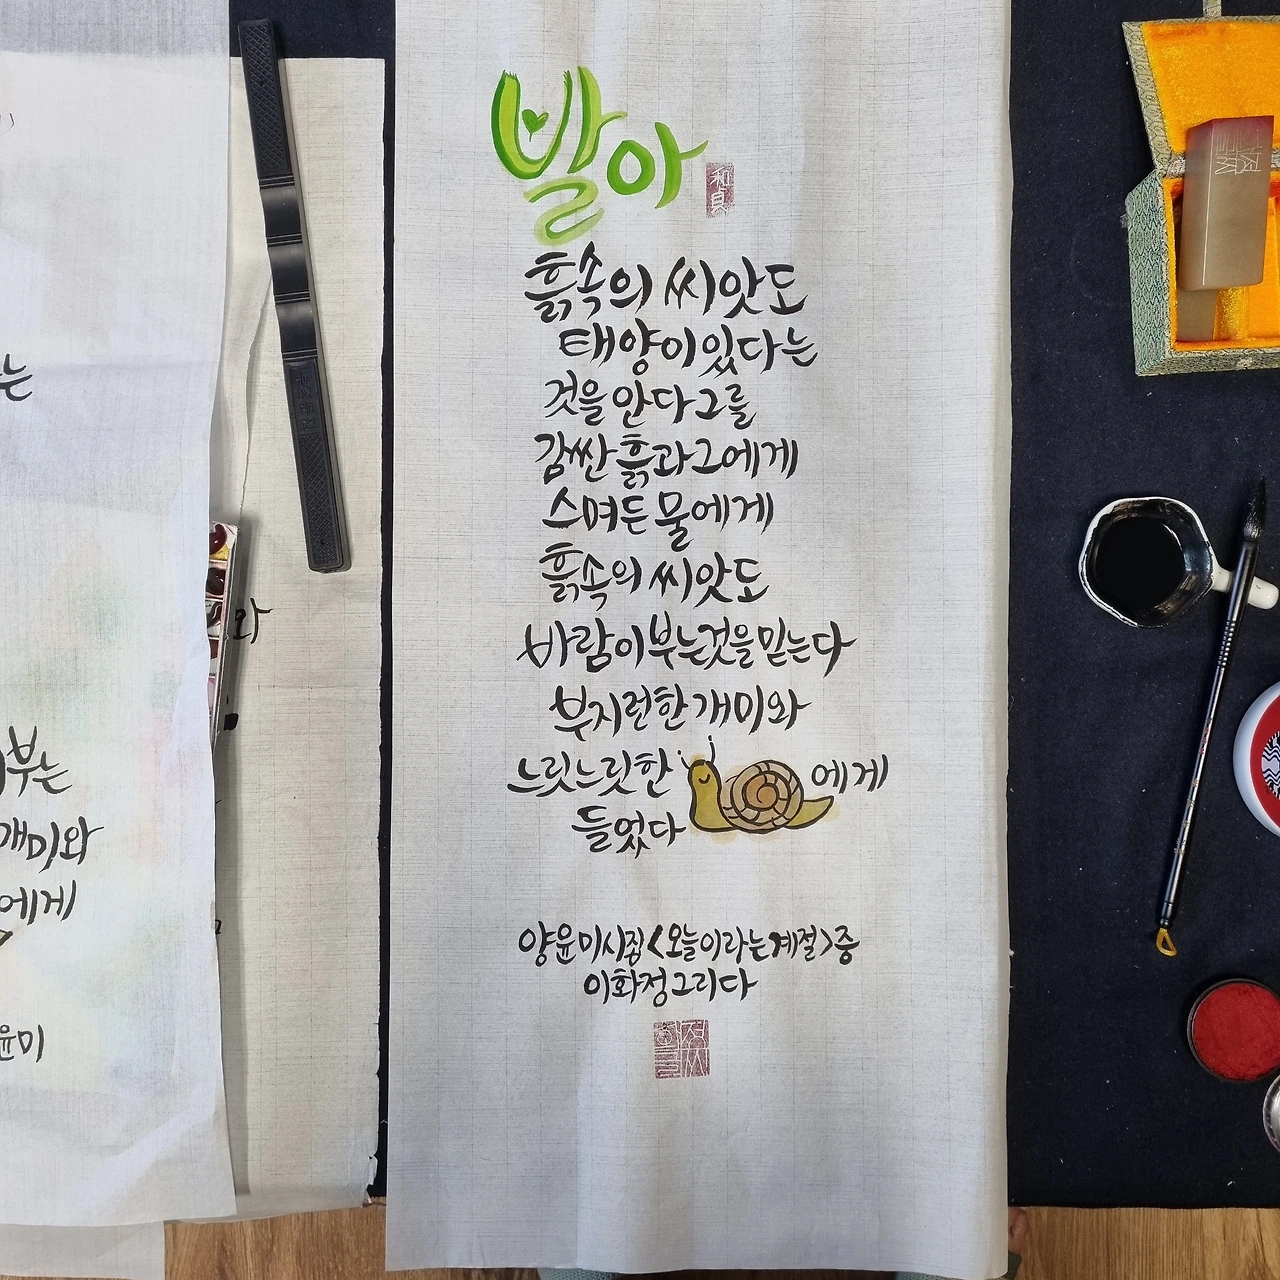 발아
和貞
흙속의 씨앗도
태양이 있다는
것을 안다 그를
감싼 흙과 그에게
스며든 물에게
흙속의 씨앗도
바람이 부는것을 믿는다
부지런한 개미와
느릿느릿한 에게
들었다
양윤미시집<오늘이라는계절>중
이화정그리다
는
와
부는
개미와
에게
윤미